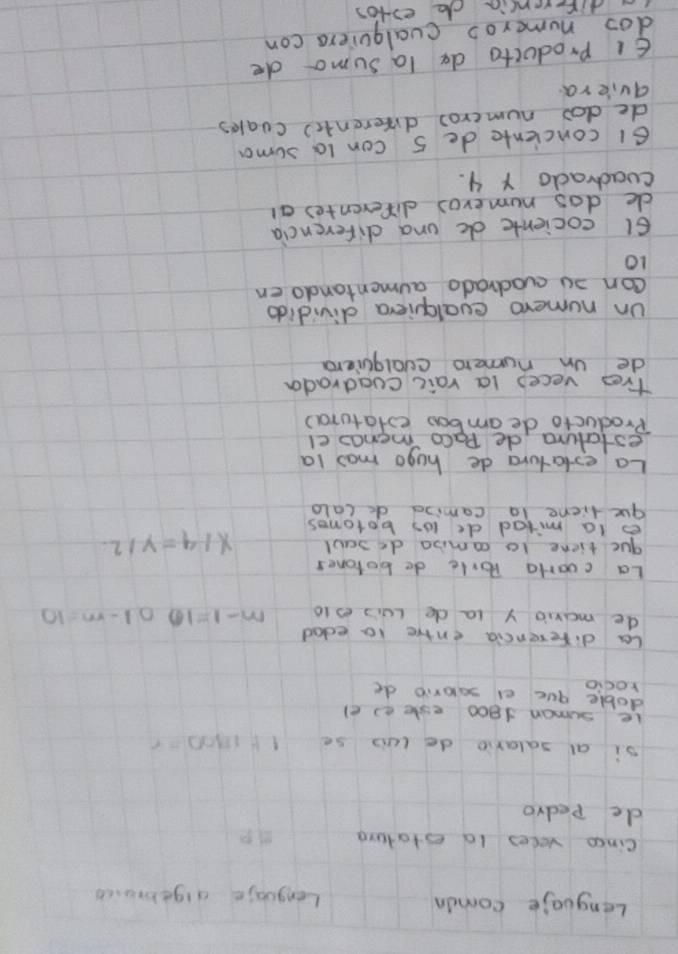 Lenguaje común Lenguaje algebraico
cinco veces la estatura 5P
de Pedro
si al salario de luis se
le suman 1800 este es el
doble que el salario de
rocio
La diferencia entre la edad
de mario y la de Luis es 10 m-1=10 o 1-m=10
La cuarta Parte de botones
que tiene la camisa de saul
es la mitad de los botones X/4=Y/2.
que tiene la camisa de Lalo
La estatura de hugo mas la
estatura de Paco menos el
Producto de ambas estaturas
tres veces la raiz cuadrada
de un numero cualquiera
un numero cualquiera dividido
con su cuadrado aumentando en
10
El cociente de una diferencia
de dos numeros diferentes al
cuadrado y 4.
El conciente de 5 con la suma
de dos numeros diferentes cuales
quiera
El Producto de la suma de
dos numeros cualquiera con
la diferencia de estos